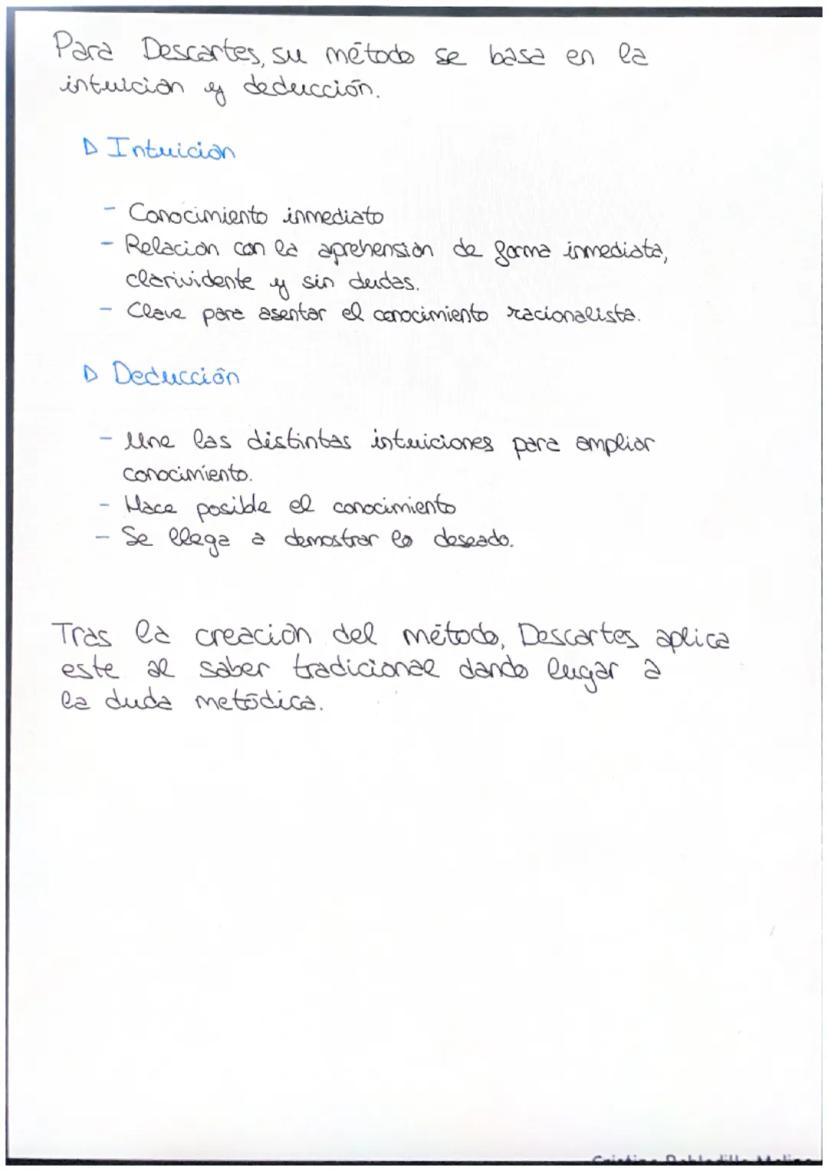 Para Descartes, su método se basa en la
intuición y deducción.
Intuición
- Conocimiento inmediato
- Relación con la aprehensión de forma inmediata,
clarividente y sin dudas.
- Clave para asentar el conocimiento racionalista.
Deducción
- Une las distintas intuiciones para ampliar
conocimiento.
- Hace posible el conocimiento
- Se llega a demostrar lo deseado.
Tras la creación del método, Descartes aplica
este al saber tradicional dando lugar a
la duda metódica.